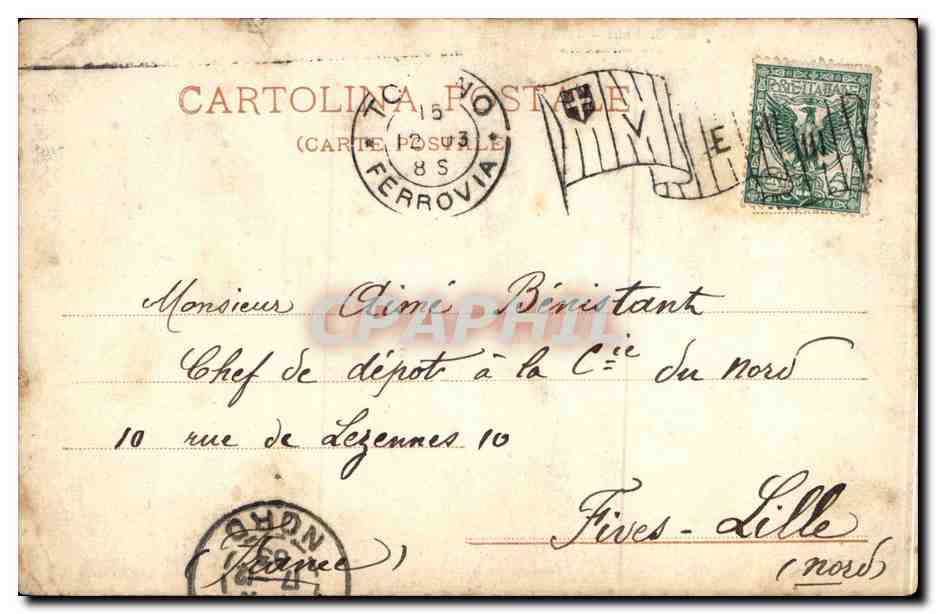 CARTOLINA POSTALE
(CARTE POSTALE)
TO NO
15
12 03
8 S
* FERROVIA *
V
E
Monsieur Aimé Bénistant
CPAPHIL
Chef de dépot à la Cie du Nord
10 rue de Lezennes 10
Fives-Lille
(Nord)
(France)
NORD
17